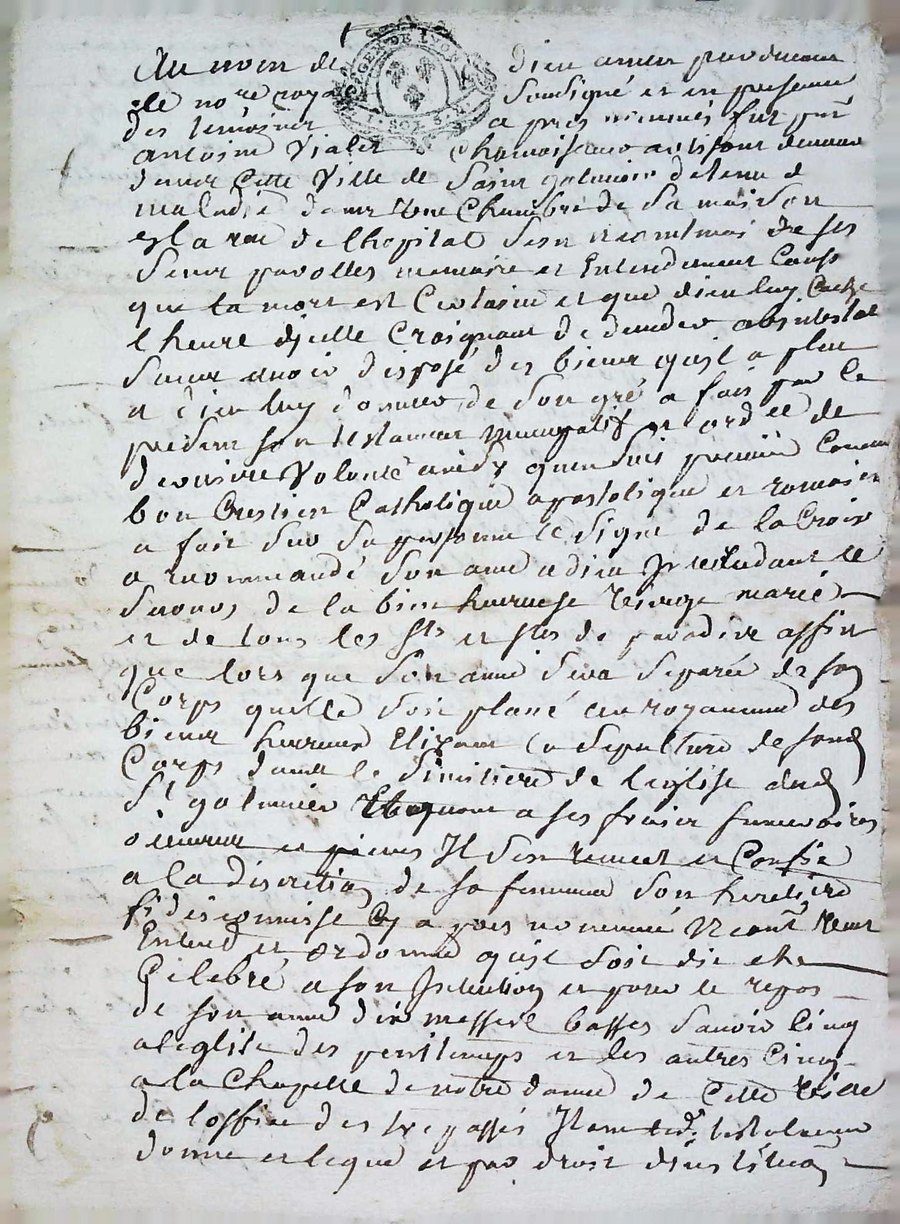 Au nom de dieu amen pardevant
le no.re royal soussigné et en presence
des temoins a pres nommés fut p.nt
antoine Vialet chamoiseur artisant demeu
dans Cette Ville de Saint galmier detenu de
maladie dans Une Chambre de Sa maison
a la rue de lhopital sein neantmoi de ses
Sens parolles memoire et Entendement
que la mort est Certaine et que dieu luy Cache
l heure dicelle Craignant de deceder abintestat
Sans avoir disposé des biens quil a plu
a dieu luy donner de Son gré a fait par le
present son testament nuncupatif et ord.ce de
derniere Volonté ainsy quensuit premier Comme
bon Crestien Catholique apostolique et romain
a fait Sur Sa personne le Signe de la Croix
a recommandé Son ame a dieu le
Secours de la bien heureuse Vierge marie
et de tous les S.ts et S.tes de paradis affin
que lors que Son ame Sera Separée de son
Corps quelle Soit placé au royaume des
biens heureux Elizant la Sepulture de sond
Corps dans le Simitiere de leglise dud
S.t galmier Et quant a ses fraix funeraires
oeuvres et pieux Il Sen remet et Confie
a la discretion de sa femme Son heritiere
fideicommise cy a pres nommé Neant.s Veut
Entend et Ordonne quil Soit dit et
Celebré a son Intention et pour le repos
de son ame dix messes basses Savoir Cinq
a leglise des penitemps et les autres Cinq
a la Chapelle de notre dame de Cette Ville
de loffice des trepassés Item led. testateur
donne et legue et par droit dinstitution